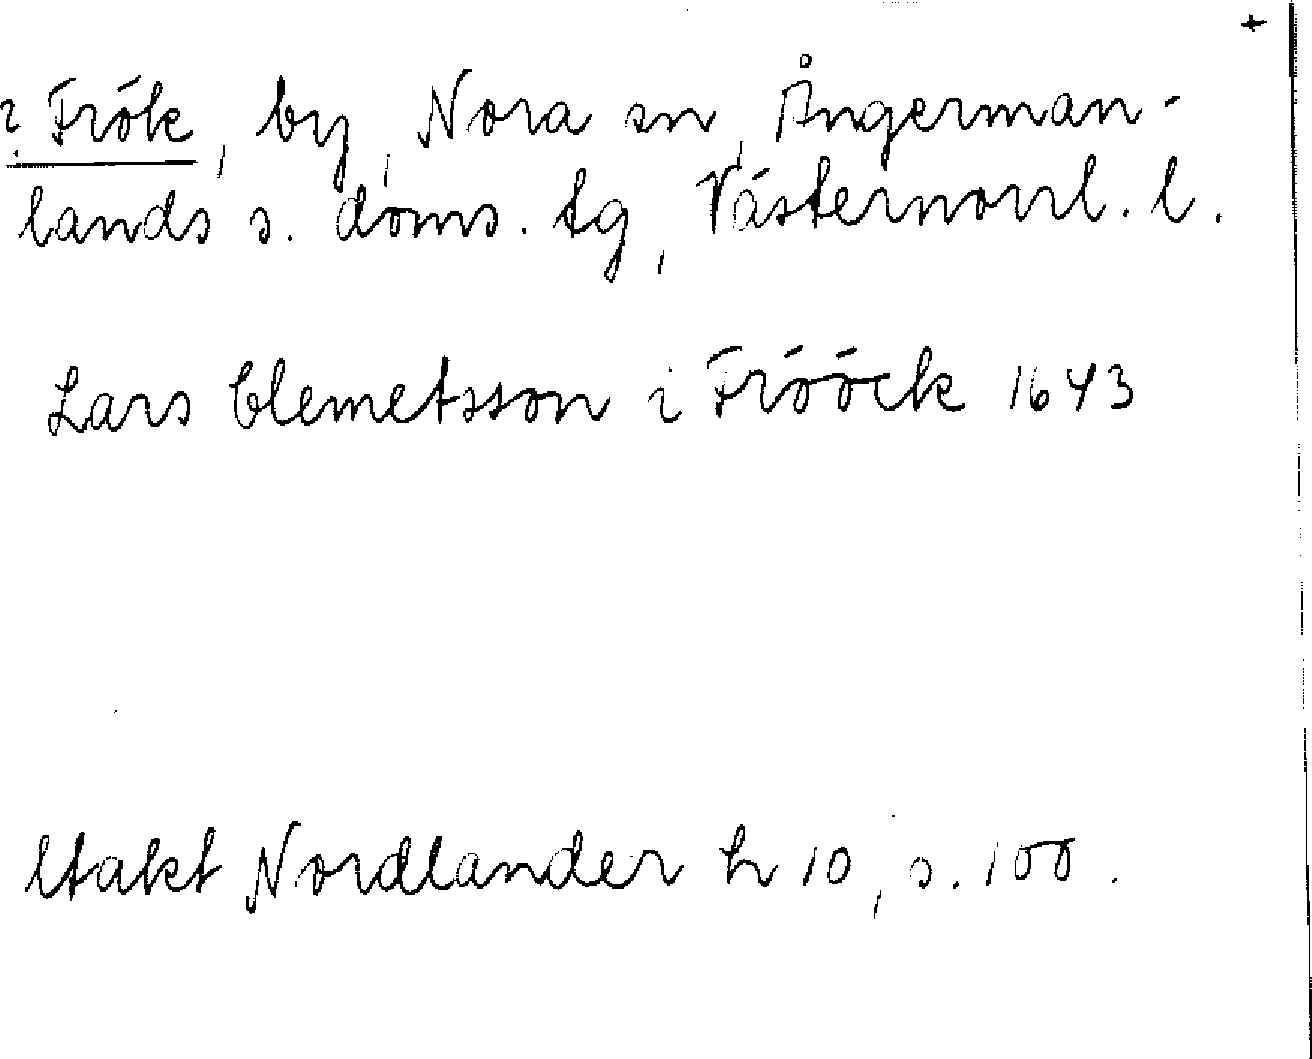 +
? Frök, by, Nora sn, Ångerman-
lands s. doms. tg, Västernorrl. l.
Lars Clemetsson i Frööck 1643
Nordlander h 10, s. 100.